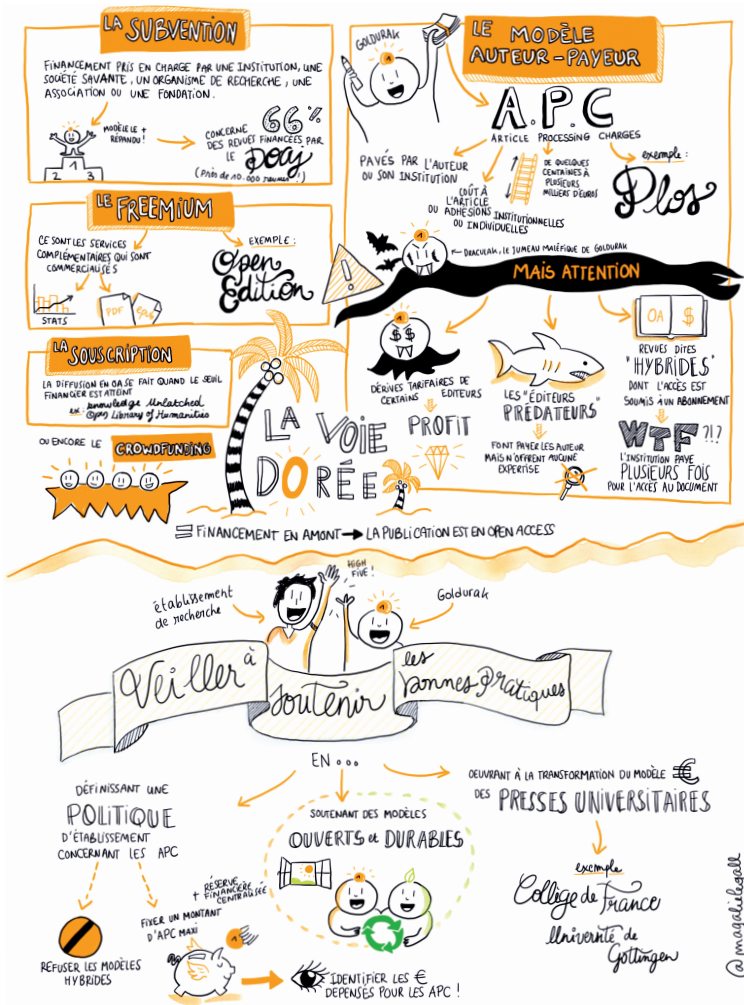 LA SUBVENTION
FINANCEMENT PRIS EN CHARGE PAR UNE INSTITUTION, UNE
SOCIÉTÉ SAVANTE, UN ORGANISME DE RECHERCHE, UNE
ASSOCIATION OU UNE FONDATION.
MODÈLE LE +
RÉPANDU !
2 1 3
CONCERNE 66%
DES REVUES FINANCÉES PAR
LE Doaj
(Près de 10.000 revues !)
LE FREEMIUM
CE SONT LES SERVICES
COMPLÉMENTAIRES QUI SONT
COMMERCIALISÉS
STATS
PDF
epub
EXEMPLE :
Open
Edition
LA SOUSCRIPTION
LA DIFFUSION EN OA SE FAIT QUAND LE SEUIL
FINANCIER EST ATTEINT
ex : Knowledge Unlatched
Open Library of Humanities
OU ENCORE LE CROWDFUNDING
GOLDURAK
LE MODÈLE
AUTEUR-PAYEUR
A.P.C
ARTICLE PROCESSING CHARGES
PAYÉS PAR L'AUTEUR
OU SON INSTITUTION
COÛT À
L'ARTICLE
OU ADHÉSIONS INSTITUTIONNELLES
OU INDIVIDUELLES
DE QUELQUES
CENTAINES À
PLUSIEURS
MILLIERS D'EUROS
exemple :
Plos
DRACULAK, LE JUMEAU MALÉFIQUE DE GOLDURAK
!
MAIS ATTENTION
$ $
DÉRIVES TARIFAIRES DE
CERTAINS EDITEURS
PROFIT
LES "ÉDITEURS
PRÉDATEURS"
FONT PAYER LES AUTEUR
MAIS N'OFFRENT AUCUNE
EXPERTISE
OA $
REVUES DITES
"HYBRIDES"
DONT L'ACCÈS EST
SOUMIS À UN ABONNEMENT
WTF ?!?
L'INSTITUTION PAYE
PLUSIEURS FOIS
POUR L'ACCÈS AU DOCUMENT
LA VOIE
DORÉE
= FINANCEMENT EN AMONT → LA PUBLICATION EST EN OPEN ACCESS
HIGH
FIVE !
établissement
de recherche
Goldurak
Veiller à
soutenir
les
bonnes Pratiques
EN ...
DÉFINISSANT UNE
POLITIQUE
D'ÉTABLISSEMENT
CONCERNANT LES APC
REFUSER LES MODÈLES
HYBRIDES
FIXER UN MONTANT
D'APC MAXI
+ RÉSERVE
FINANCIÈRE
CENTRALISÉE
IDENTIFIER LES €
DEPENSÉS POUR LES APC !
SOUTENANT DES MODÈLES
OUVERTS et DURABLES
OEUVRANT À LA TRANSFORMATION DU MODÈLE €
DES PRESSES UNIVERSITAIRES
exemple
Collège de France
Université de
Gottingen
@magalielegall